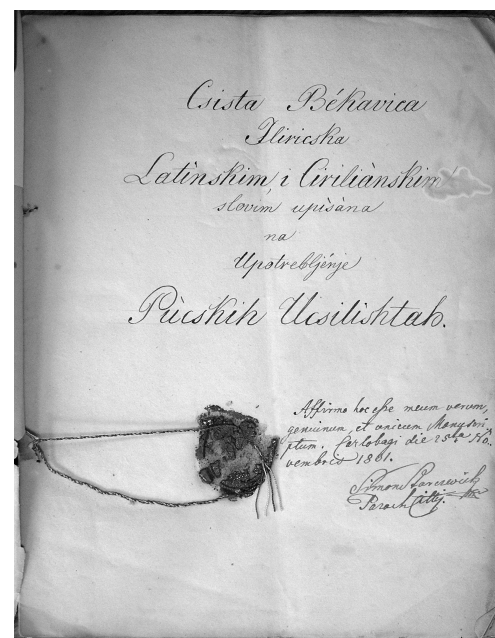 Csista Békavica
Iliricska
Latìnskim, i Ciriliànskim
slovim upìsàna
na
Upotrebljénje
Pùcskih Ucsilishtah.
Affirmo hoc esse meum verum,
genuinum, et unicum Manuscri-
ptum. Carlobagi die 25ta No-
vembris 1861.
Simone
Paroch